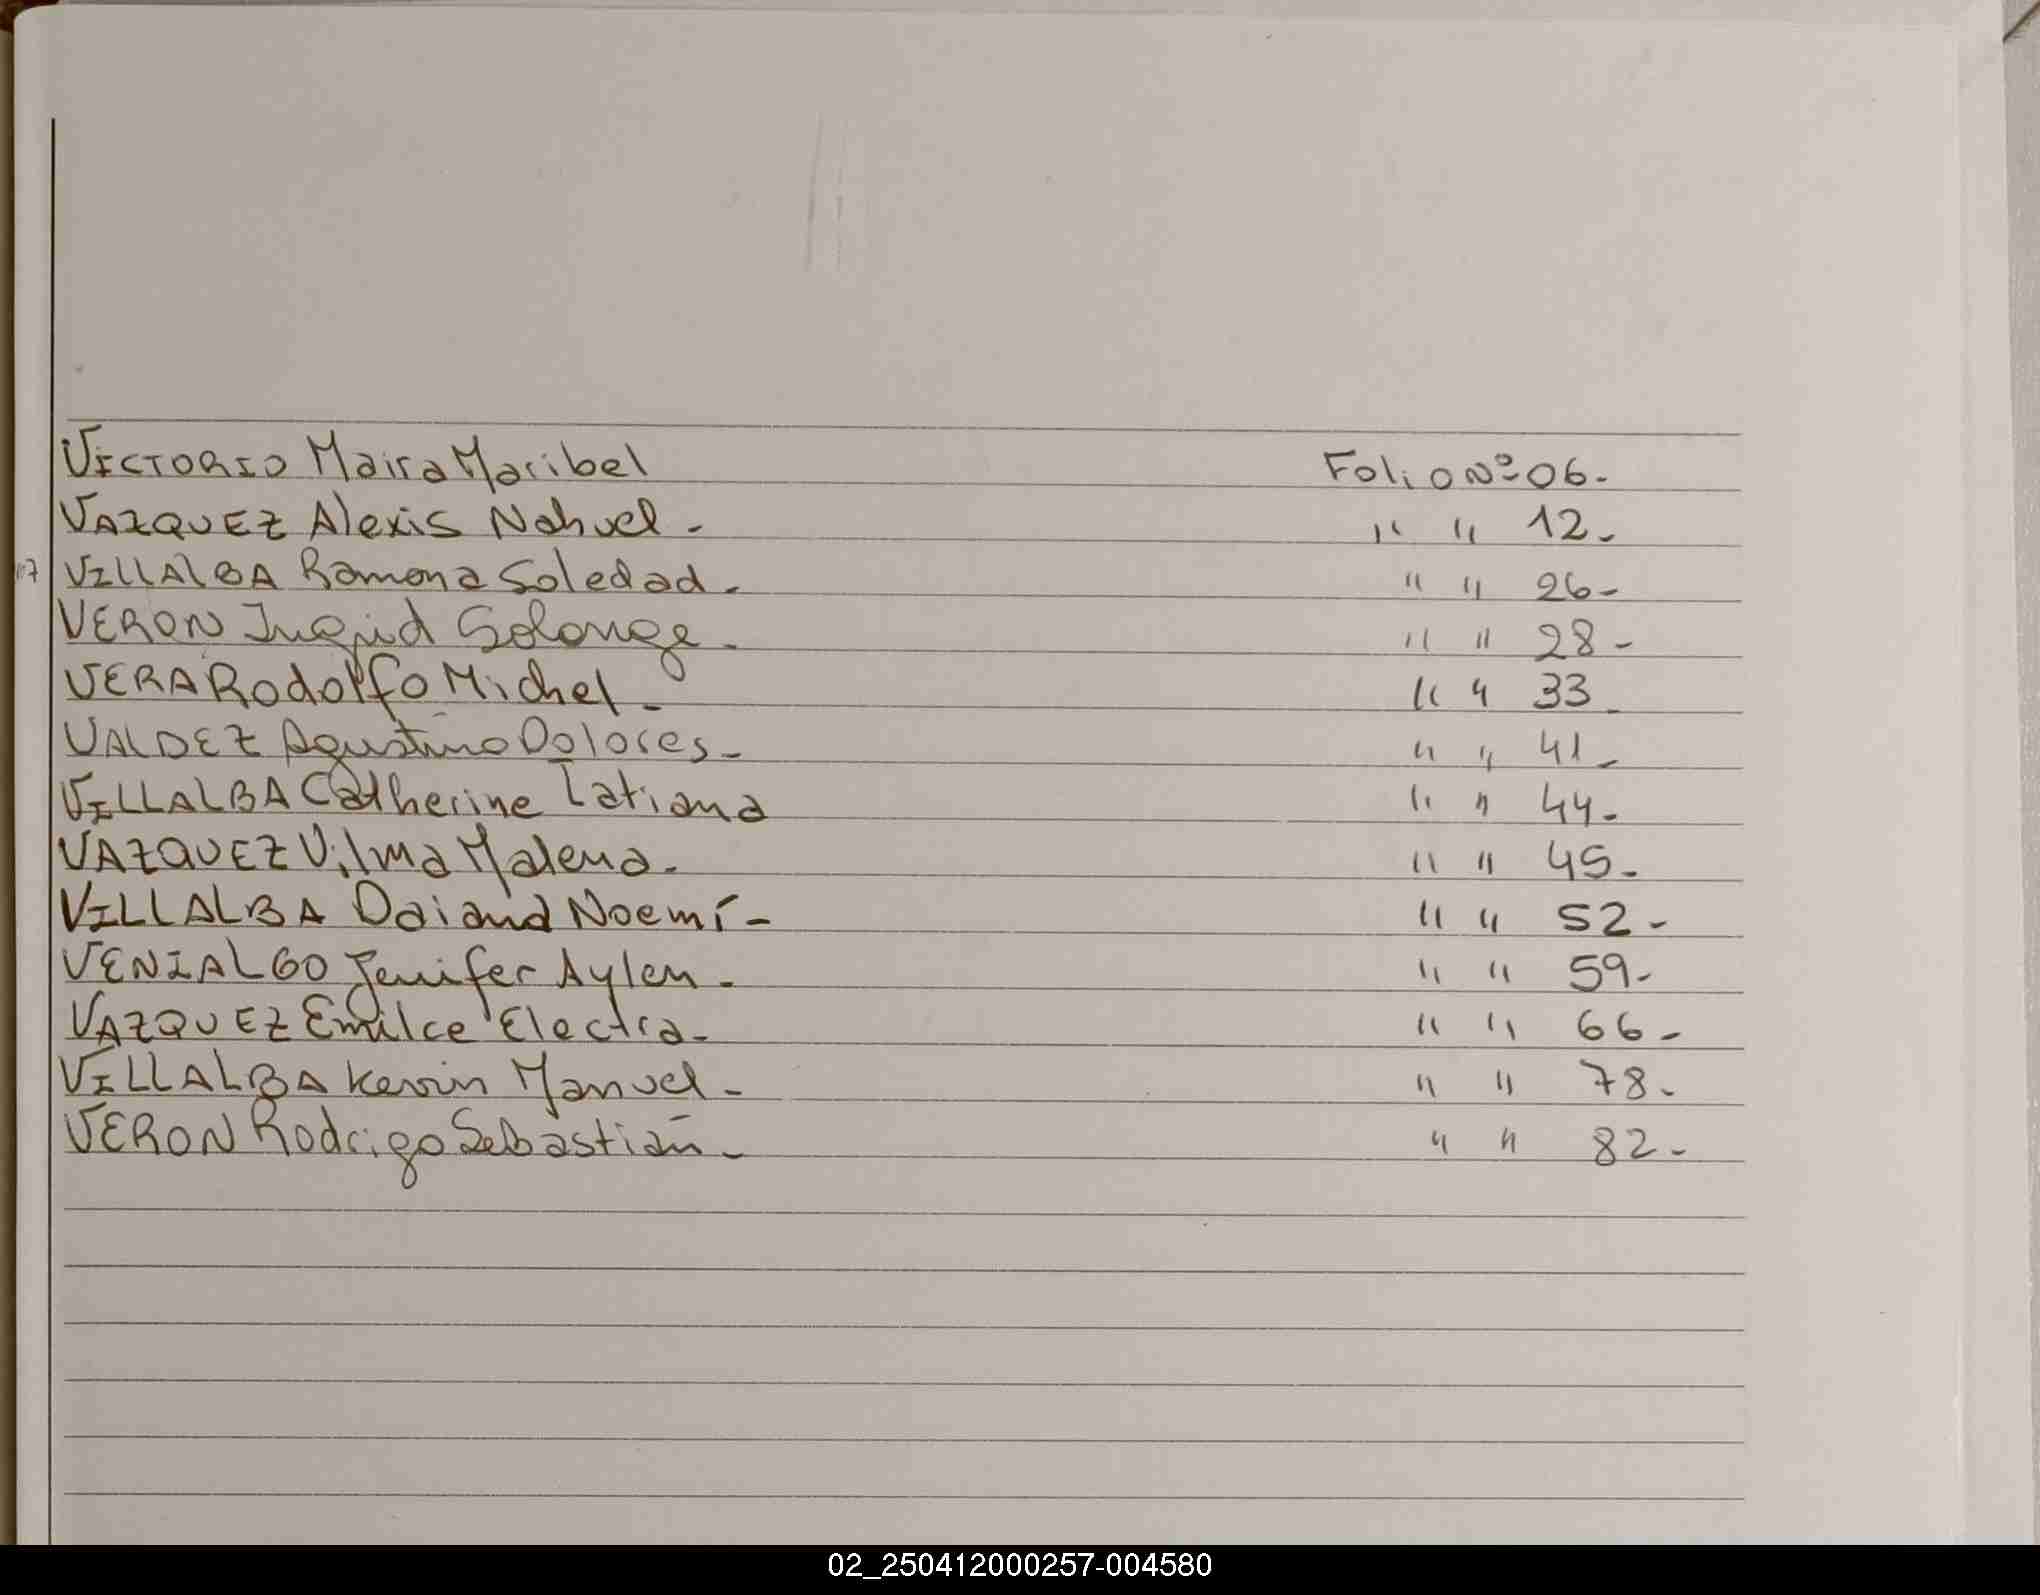 VICTORIO Maira Maribel Folio Nº 06.
VAZQUEZ Alexis Nahuel - " " 12-
VILLALBA Ramona Soledad. " " 26-
VERON Ingrid Solange- " " 28-
VERA Rodolfo Michel- " " 33-
VALDEZ Agustina Dolores- " " 41-
VILLALBA Catherine Tatiana " " 44-
VAZQUEZ Vilma Malena- " " 45-
VILLALBA Daiana Noemí- " " 52-
VENIALGO Jenifer Aylen- " " 59-
VAZQUEZ Emilce Electra- " " 66-
VILLALBA Kevin Manuel- " " 78-
VERON Rodrigo Sebastián- " " 82-
02_250412000257-004580